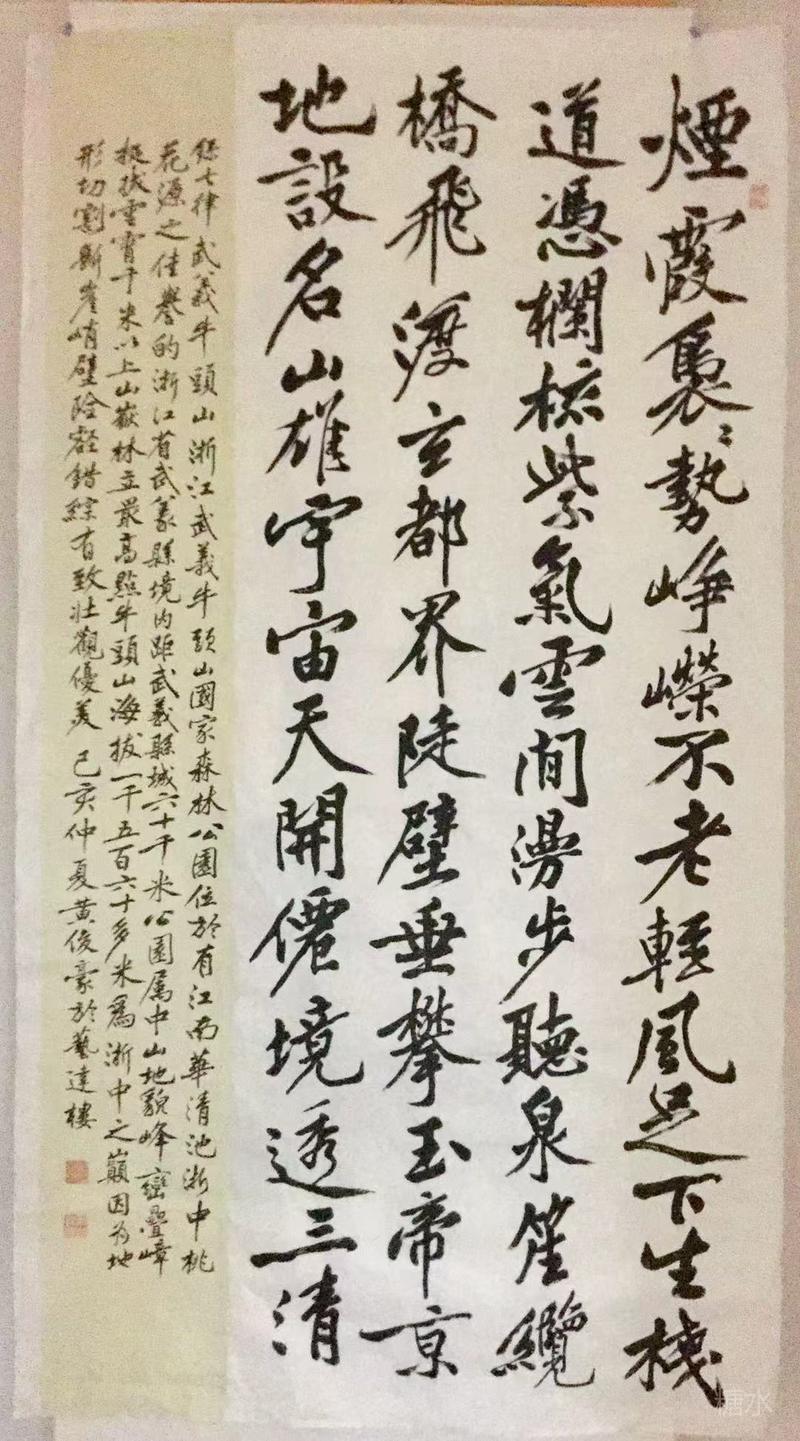 煙霞裊々勢崢嶸不老輕風足下生棧
道憑欄梳紫氣雲間漫步聽泉笙纜
橋飛渡玄都界陡壁垂攀玉帝京
地設名山雄宇宙天開僊境透三清
錄七律武義牛頭山浙江武義牛頭山國家森林公園位於有江南華清池浙中桃
花源之佳譽的浙江省武義縣境內距武義縣城六十千米公園屬中山地貌峰巒疊嶂
挺拔雲霄千米以上山嶽林立最高點牛頭山海拔一千五百六十多米為浙中之巔因为地
形切割斷崖峭壁險壑錯綜有致壯觀優美 己亥仲夏黃俊豪於藝達樓
糖水